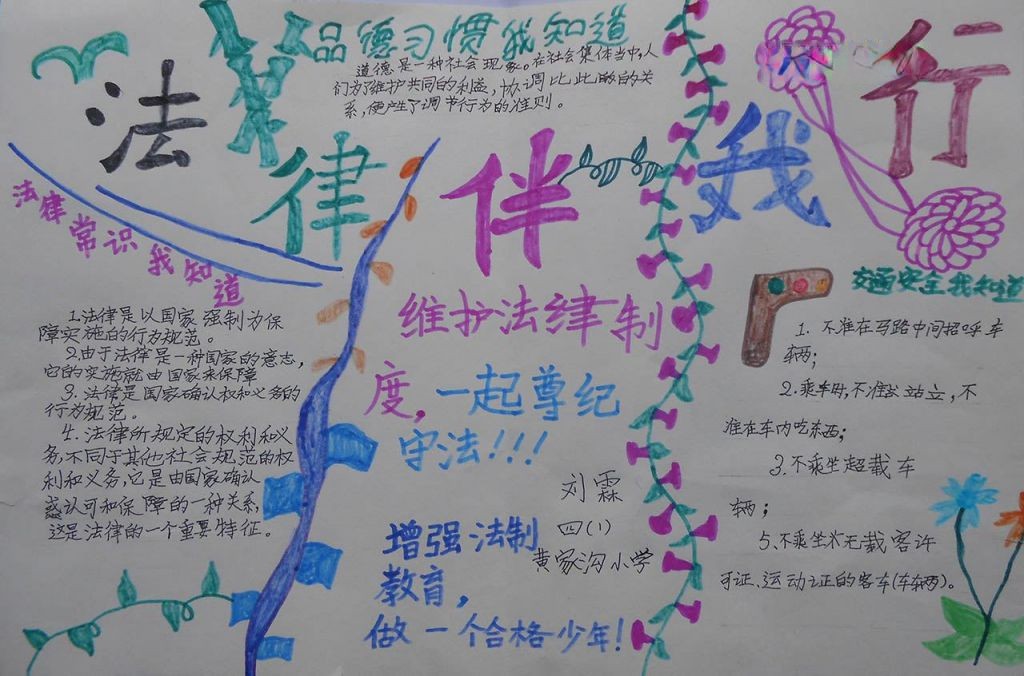 法律伴我行
品德习惯我知道
道德是一种社会现象。在社会集体当中,人
们为了维护共同的利益,协调比此的关
系,便产生了调节行为的准则。
法律常识我知道
1.法律是以国家强制为保
障实施的行为规范。
2.由于法律是一种国家的意志,
它的实施就由国家来保障
3.法律是国家确认权和义务的
行为规范。
4.法律所规定的权利和义
务,不同于其他社会规范的权
利和义务,它是由国家确认
或认可和保障的一种关系,
这是法律的一个重要特征。
维护法律制
度,一起尊纪
守法!!!
刘霖
四(1)
黄家沟小学
增强法制
教育,
做一个合格少年!
交通安全我知道
1.不准在马路中间招呼车
辆;
2.乘车时,不准站立,不
准在车内吃东西;
3.不乘坐超载车
辆;
5.不乘坐无载客许
可证、运动证的客车(车辆)。